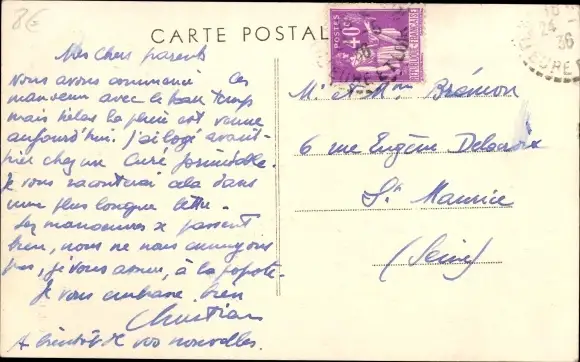 8€
CARTE POSTALE
Mes chers parents
Nous avons commencé les
manœuvres avec le beau temps
mais hélas la pluie est venue
aujourd'hui. J'ai logé avant-
hier chez un curé formidable.
Je vous raconterai cela dans
une plus longue lettre.
Les manœuvres se passent
bien, nous ne nous ennuyons
pas, je vous assure, à la popote.
Je vous embrasse bien
Christian
A bientôt de vos nouvelles.
POSTES
40c
REPUBLIQUE FRANÇAISE
24
36
EURE
Mr & Mme Brémon
6 rue Eugène Delacroix
St Maurice
(Seine)